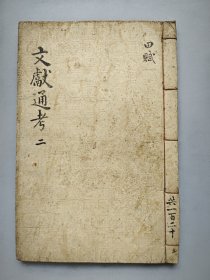 田賦
文獻通考 二
共一百二十